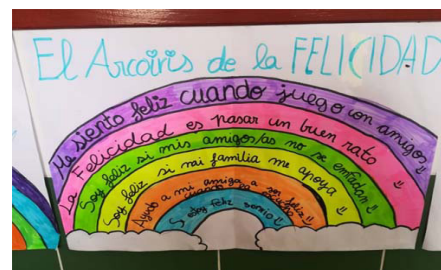 El Arcoíris de la FELICIDAD
Me siento feliz cuando juego con amigos
La Felicidad es pasar un buen rato
Soy feliz si mis amigos/as no se enfadan
Soy feliz si mi familia me apoya
Ayudo a mi amiga a ser feliz
Si estoy feliz sonrío